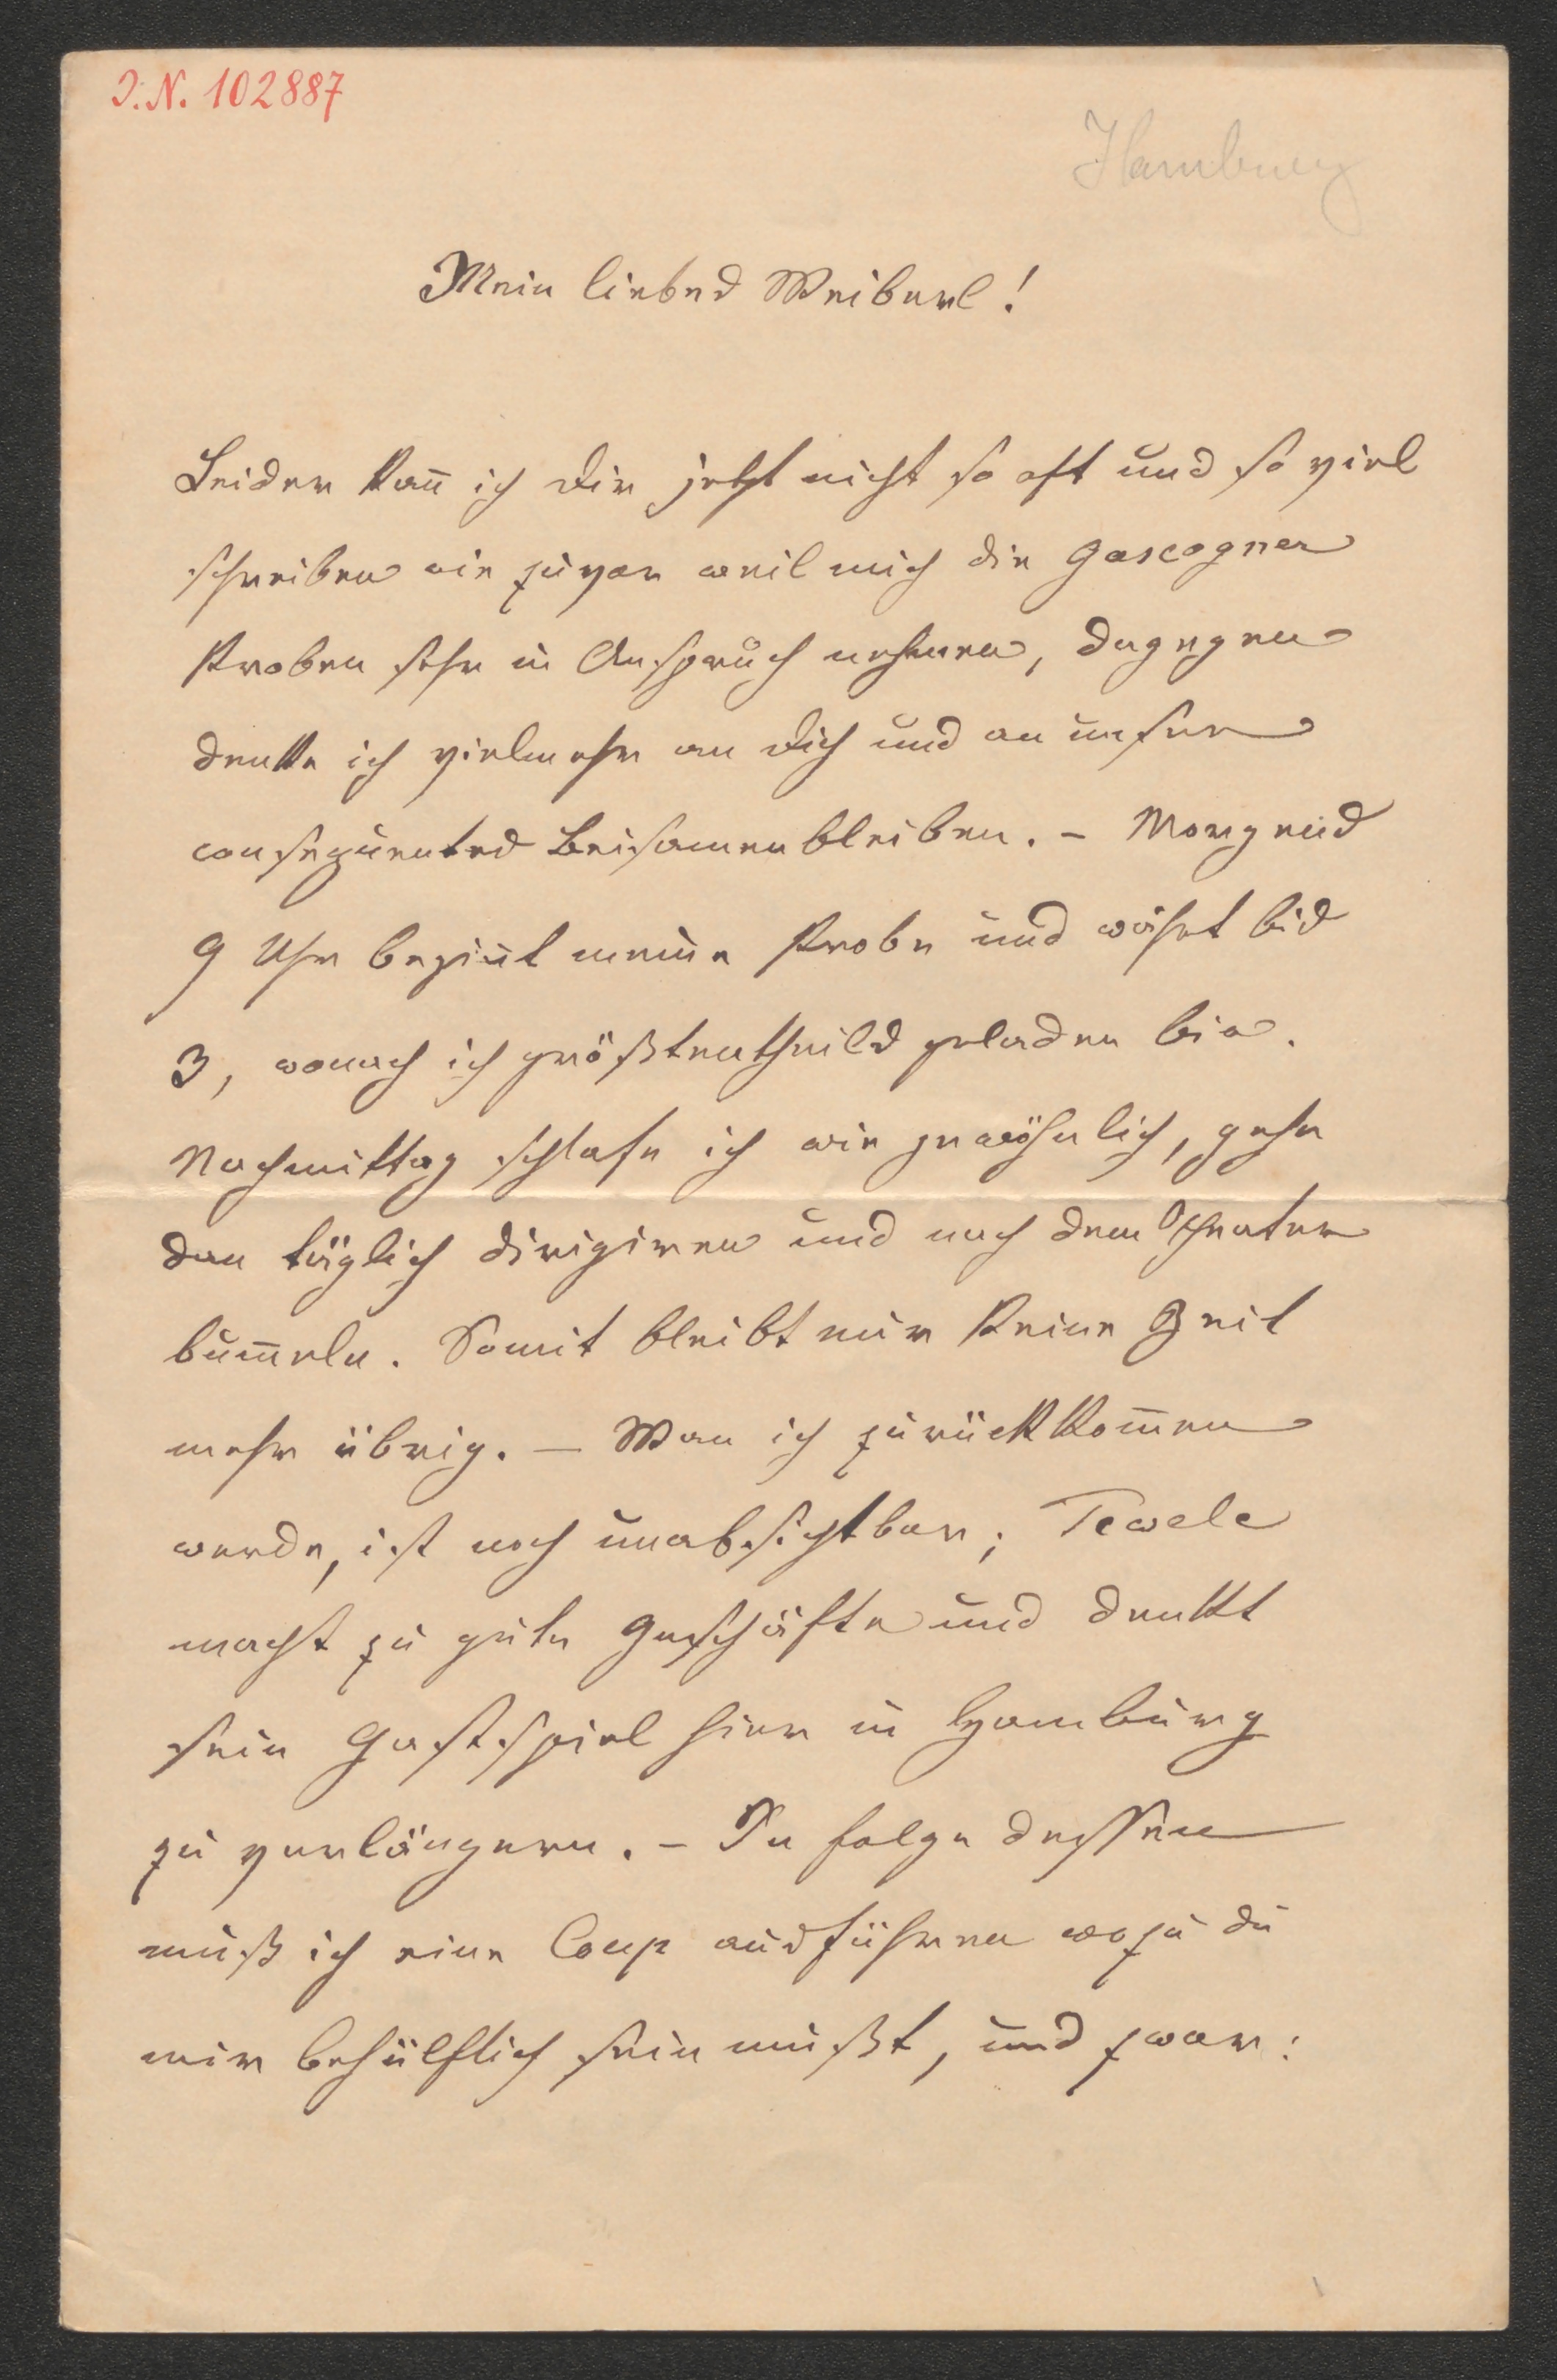 J. N. 102887
Hamburg
Mein liebes Weiberl!
Leider kan̄ ich Dir jetzt nicht so oft und so viel
schreiben wie zuvor weil mich die Gascogner
Proben sehr in Anspruch nehmen, dagegen
denke ich vielmehr an Dich und an unser
consequentes Beisamenbleiben. – Morgens
9 Uhr begin̄t meine Probe und währt bis
3, wonach ich größtentheils geladen bin.
Nachmittag schlafe ich wie gewöhnlich, gehe
dan täglich dirigiren und nach dem Theater
bum̄eln. Somit bleibt mir keine Zeit
mehr übrig. – Wan ich zurückkom̄en
werde, ist noch unabsichtbar; Tewele
macht zu gute Geschäfte und denkt
sein Gastspiel hier in Hamburg
zu verlängern. – In folge dessen
muß ich eine Coup ausführen wozu du
mir behülflich sein mußt, und zwar: